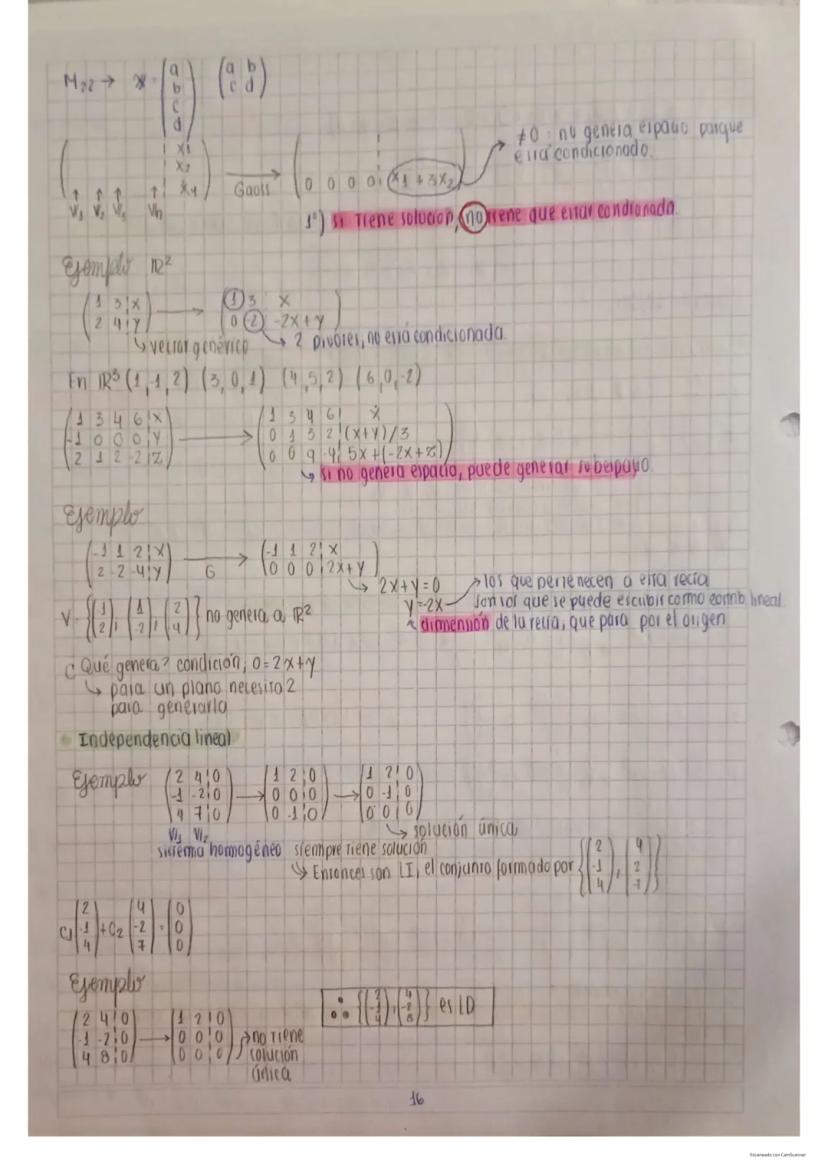 M₂₂ → x = (a b c d) (a b / c d)
( ¦ x₁ ¦ x₂ ¦ x₄ ) Gauss → ( 0 0 0 0 ¦ x₁ + 3x₂ )
≠0 : no genera espacio porque
está condicionado.
v₁ v₂ v₃ vₙ
1°) si tiene solución, no tiene que estar condionada.
Ejemplo ℝ²
( 1 3 ¦ x ) → ( 1 3 x )
( 2 4 ¦ y ) ( 0 -2 -2x+y )
↳ vector genérico ↳ 2 pivotes, no está condicionada.
En ℝ³ (1,-1,2) (3,0,1) (4,5,2) (6,0,-2)
( 1 3 4 6 ¦ x ) → ( 1 3 4 6 ¦ x )
( -1 0 0 0 ¦ y ) ( 0 1 3 2 ¦ (x+y)/3 )
( 2 1 2 -2 ¦ z ) ( 0 0 9 -4 ¦ 5x+(-2x+z) )
↳ si no genera espacio, puede generar subespayo.
Ejemplo
( -1 1 2 ¦ x ) → ( -1 1 2 ¦ x )
( 2 -2 -4 ¦ y ) G ( 0 0 0 ¦ 2x+y )
↳ 2x+y=0
y=-2x
→ los que pertenecen a esta recta
son los que se puede escribir como comb. lineal
dimensión de la recta, que pasa por el origen
V = {( -1 2 ), ( 1 -2 ), ( 2 4 )} no genera a ℝ²
¿Qué genera? condición, 0=2x+y
↳ para un plano necesito 2
para generarla
Independencia lineal
Ejemplo ( 2 4 ¦ 0 ) → ( 1 2 ¦ 0 ) → ( 1 2 ¦ 0 )
( -1 -2 ¦ 0 ) ( 0 0 ¦ 0 ) ( 0 -1 ¦ 0 )
( 4 7 ¦ 0 ) ( 0 -1 ¦ 0 ) ( 0 0 ¦ 0 )
v₁ v₂ ↳ solución única
sistema homogéneo siempre tiene solución
↳ Entonces son LI, el conjunto formado por {( 2 -1 4 ), ( 4 2 -7 )}
C₁( 2 -1 4 ) + C₂( 4 -2 7 ) = ( 0 0 0 )
Ejemplo
( 2 4 ¦ 0 ) → ( 1 2 ¦ 0 )
( -1 -2 ¦ 0 ) ( 0 0 ¦ 0 )
( 4 8 ¦ 0 ) ( 0 0 ¦ 0 )
no tiene
solución
única
∴ {( 2 -1 4 ), ( 4 -2 8 )} es LD
16
Escaneado con CamScanner